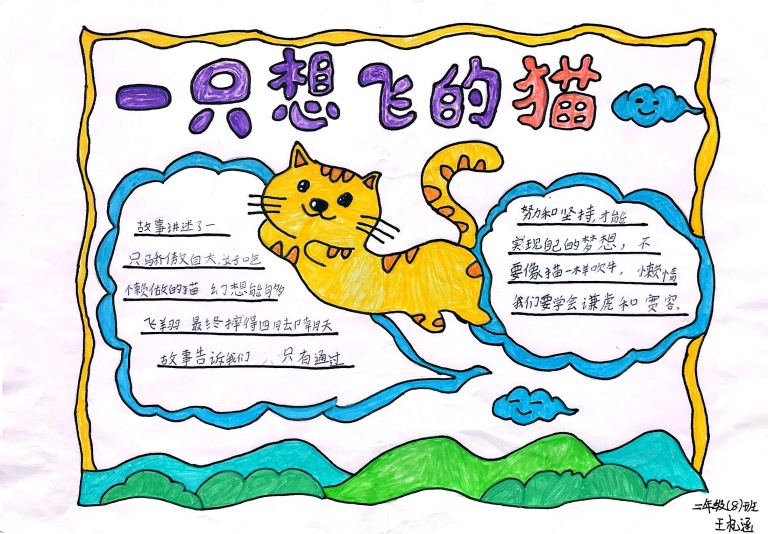 一只想飞的猫
故事讲述了一
只骄傲自大、好吃
懒做的猫 幻想能够
飞翔 最终摔得四脚朝天
故事告诉我们 只有通过
努力和坚持,才能
实现自己的梦想，不
要像猫一样吹牛，懒惰
我们要学会谦虚和宽容。
二年级(8)班
王